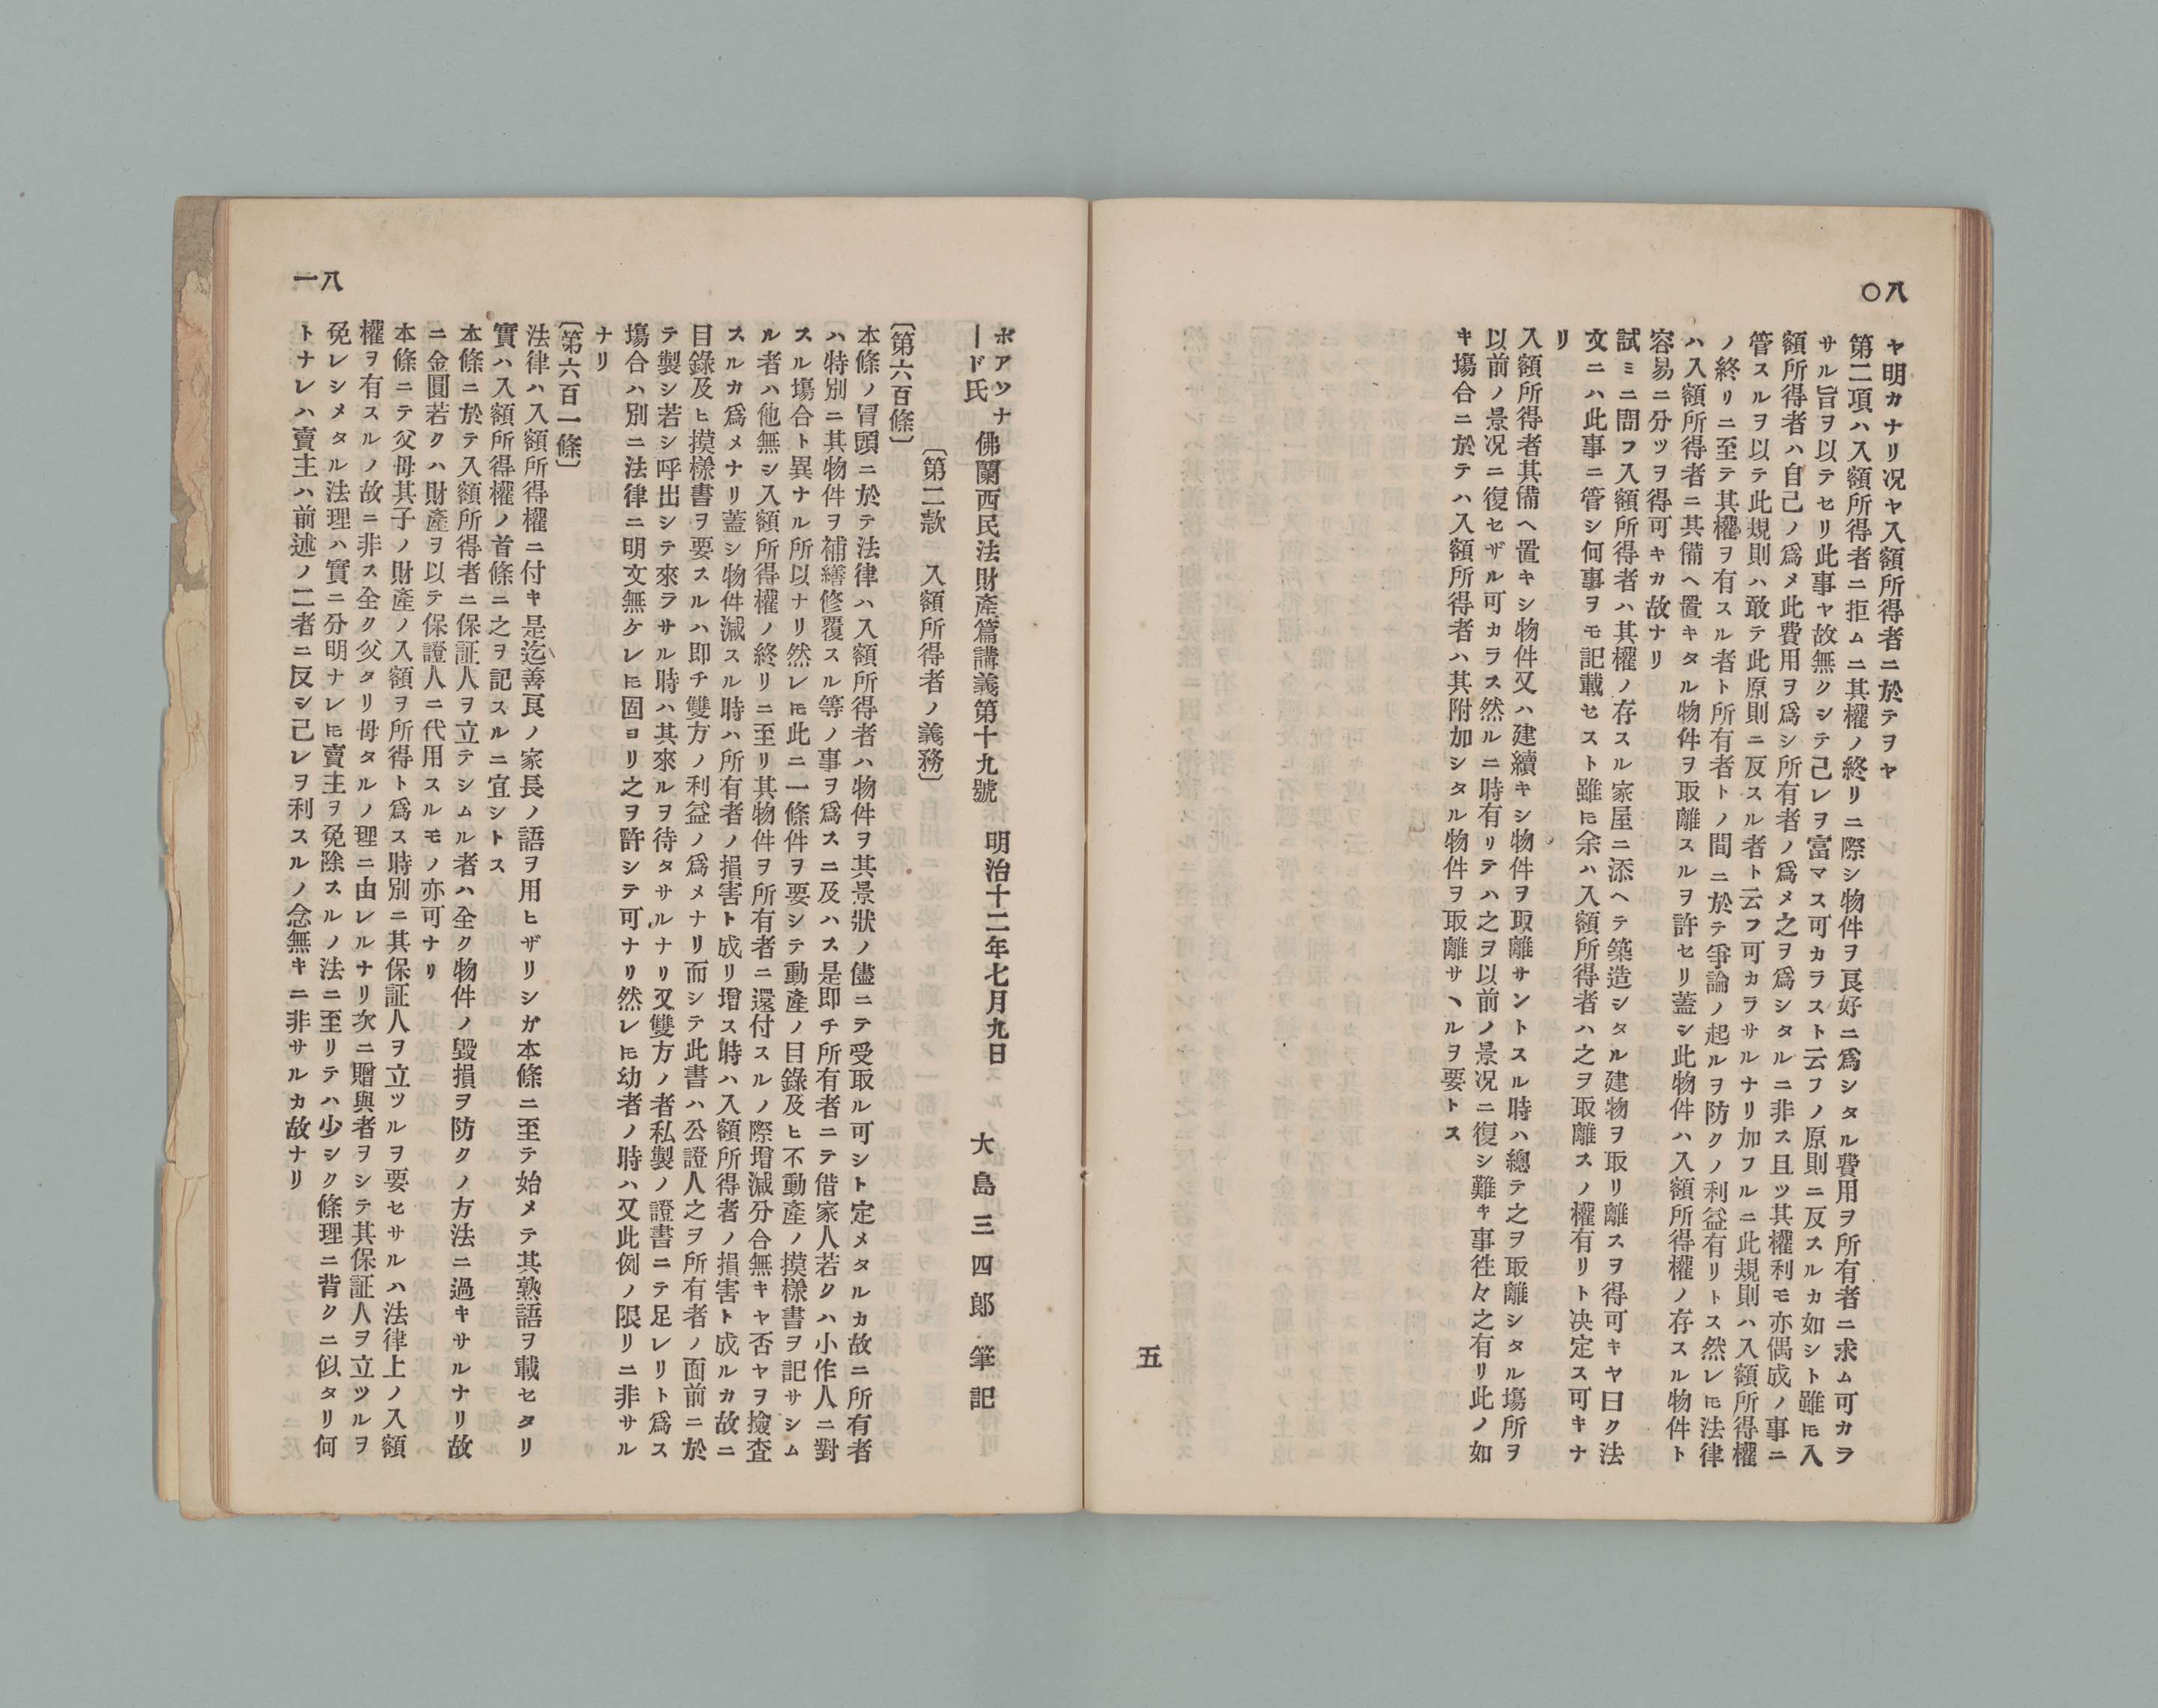 八〇
ヤ明カナリ况ヤ入額所得者ニ於テヲヤ
第二項ハ入額所得者ニ拒ムニ其權ノ終リニ際シ物件ヲ良好ニ爲シタル費用ヲ所有者ニ求ム可カラ
サル旨ヲ以テセリ此事ヤ故無クシテ己レヲ富マス可カラスト云フノ原則ニ反スルカ如シト雖𪜈入
額所得者ハ自己ノ爲メ此費用ヲ爲シ所有者ノ爲メ之ヲ爲シタルニ非ス且ツ其權利モ亦偶成ノ事ニ
管スルヲ以テ此規則ハ敢テ此原則ニ反スル者ト云フ可カラサルナリ加フルニ此規則ハ入額所得權
ノ終リニ至テ其權ヲ有スル者ト所有者トノ間ニ於テ爭論ノ起ルヲ防クノ利益有リトス然レ𪜈法律
ハ入額所得者ニ其備ヘ置キタル物件ヲ取離スルヲ許セリ蓋シ此物件ハ入額所得權ノ存スル物件ト
容易ニ分ツヲ得可キカ故ナリ
試ミニ問フ入額所得者ハ其權ノ存スル家屋ニ添ヘテ築造シタル建物ヲ取リ離スヲ得可キヤ曰ク法
文ニハ此事ニ管シ何事ヲモ記載セスト雖𪜈余ハ入額所得者ハ之ヲ取離スノ權有リト决定ス可キナ
リ
入額所得者其備ヘ置キシ物件又ハ建續キシ物件ヲ取離サントスル時ハ總テ之ヲ取離シタル塲所ヲ
以前ノ景况ニ復セザル可カラス然ルニ時有リテハ之ヲ以前ノ景况ニ復シ難キ事徃々之有リ此ノ如
キ塲合ニ於テハ入額所得者ハ其附加シタル物件ヲ取離サヽルヲ要トス
五
八一
ボアソナード氏 佛蘭西民法財產篇講義第十九號 明治十二年七月九日 大島三四郎 筆記
〔第二款 入額所得者ノ義務〕
〔第六百條〕
本條ノ冒頭ニ於テ法律ハ入額所得者ハ物件ヲ其景狀ノ儘ニテ受取ル可シト定メタルカ故ニ所有者
ハ特別ニ其物件ヲ補繕修覆スル等ノ事ヲ爲スニ及ハス是即チ所有者ニテ借家人若クハ小作人ニ對
スル塲合ト異ナル所以ナリ然レ𪜈此ニ一條件ヲ要シテ動產ノ目錄及ヒ不動產ノ摸樣書ヲ記サシム
ル者ハ他無シ入額所得權ノ終リニ至リ其物件ヲ所有者ニ還付スルノ際增減分合無キヤ否ヤヲ撿査
スルカ爲メナリ蓋シ物件減スル時ハ所有者ノ損害ト成リ增ス時ハ入額所得者ノ損害ト成ルカ故ニ
目錄及ヒ摸樣書ヲ要スルハ即チ雙方ノ利益ノ爲メナリ而シテ此書ハ公證人之ヲ所有者ノ面前ニ於
テ製シ若シ呼出シテ來ラサル時ハ其來ルヲ待タサルナリ又雙方ノ者私製ノ證書ニテ足レリト爲ス
塲合ハ別ニ法律ニ明文無ケレ𪜈固ヨリ之ヲ許シテ可ナリ然レ𪜈幼者ノ時ハ又此例ノ限リニ非サル
ナリ
〔第六百一條〕
法律ハ入額所得權ニ付キ是迄善良ノ家長ノ語ヲ用ヒザリシガ本條ニ至テ始メテ其熟語ヲ載セタリ
實ハ入額所得權ノ首條ニ之ヲ記スルニ宜シトス
本條ニ於テ入額所得者ニ保証人ヲ立テシムル者ハ全ク物件ノ毀損ヲ防クノ方法ニ過キサルナリ故
ニ金圓若クハ財產ヲ以テ保證人ニ代用スルモノ亦可ナリ
本條ニテ父母其子ノ財產ノ入額ヲ所得ト爲ス時別ニ其保証人ヲ立ツルヲ要セサルハ法律上ノ入額
權ヲ有スルノ故ニ非ス全ク父タリ母タルノ理ニ由レルナリ次ニ贈與者ヲシテ其保証人ヲ立ツルヲ
免レシメタル法理ハ實ニ分明ナレ𪜈賣主ヲ免除スルノ法ニ至リテハ少シク條理ニ背クニ似タリ何
トナレハ賣主ハ前述ノ二者ニ反シ己レヲ利スルノ念無キニ非サルカ故ナリ